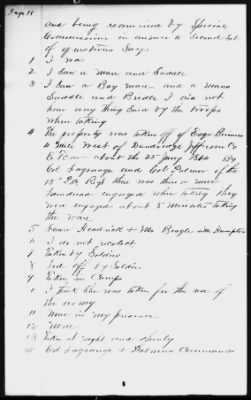 Page 11
and being examined by Special
Commissioner in answer to Second Set
of questions Say
1 I was
2 I Saw a Man and Saddle
3 I Saw a Bay mare and a Mans
Saddle and Bridle I did not
hear any thing Said by the troops
when taking
4 The property was taken off of
4 Mile West of Dandridge Jefferson Co
E Tenn about the 25 Jany 1864 by
Col Lagrange and Col Palmer of the
15 Pa Regt there was
engaged when taking they
was engaged about 5 Minutes taking
the mare
5 Isaac Headrick & Mrs
6 I do not recolect
7 Taken by Soldiers
8 Led off by Soldier
9 Taken in Camps
10 I think She was taken for the use of
the army
11 None in my presence
12 None
13 Taken at night and openly
14 Col Lagrange & Palmer Commanders